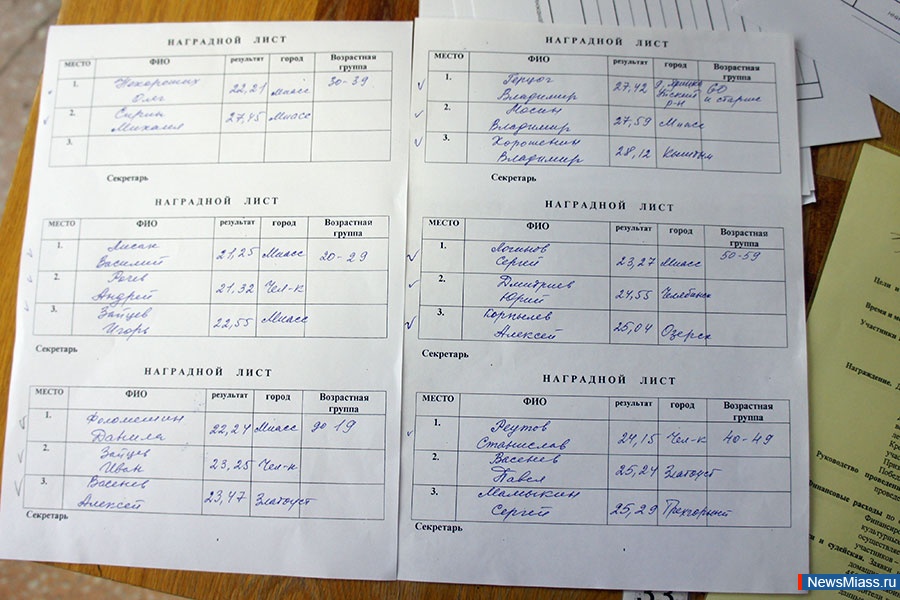 НАГРАДНОЙ ЛИСТ
МЕСТО ФИО результат город Возрастная группа
1. Нехороших Олег 22,21 Миасс 30-39
2. Сирин Михаил 27,45 Миасс
3.
Секретарь
НАГРАДНОЙ ЛИСТ
МЕСТО ФИО результат город Возрастная группа
1. Лисак Василий 21,25 Миасс 20-29
2. Рогев Андрей 21,32 Чел-к
3. Зайцев Игорь 22,55 Миасс
Секретарь
НАГРАДНОЙ ЛИСТ
МЕСТО ФИО результат город Возрастная группа
1. Фоломешин Данила 22,24 Миасс до 19
2. Зайцев Иван 23,25 Чел-к
3. Васенев Алексей 23,47 Златоуст
Секретарь
НАГРАДНОЙ ЛИСТ
МЕСТО ФИО результат город Возрастная группа
1. Герцог Владимир 27,42 р-н 60 и старше
2. Носин Владимир 27,59 Миасс
3. Хорошенин Владимир 28,12 Кыштым
Секретарь
НАГРАДНОЙ ЛИСТ
МЕСТО ФИО результат город Возрастная группа
1. Логинов Сергей 23,27 Миасс 50-59
2. Дмитриев Юрий 24,55 Челябинск
3. Корпылев Алексей 25,04 Озерск
Секретарь
НАГРАДНОЙ ЛИСТ
МЕСТО ФИО результат город Возрастная группа
1. Реутов Станислав 24,15 Чел-к 40-49
2. Васенев Павел 25,24 Златоуст
3. Мамыкин Сергей 25,29 Трехгорный
Секретарь
Цели и
Время и ме
Участники
Награждение. Д
Руководство проведени
проведе
Финансовые расходы по
Финансиро
культурные
осуществляе
участников –
и судейская. Заявки
NewsMiass.ru